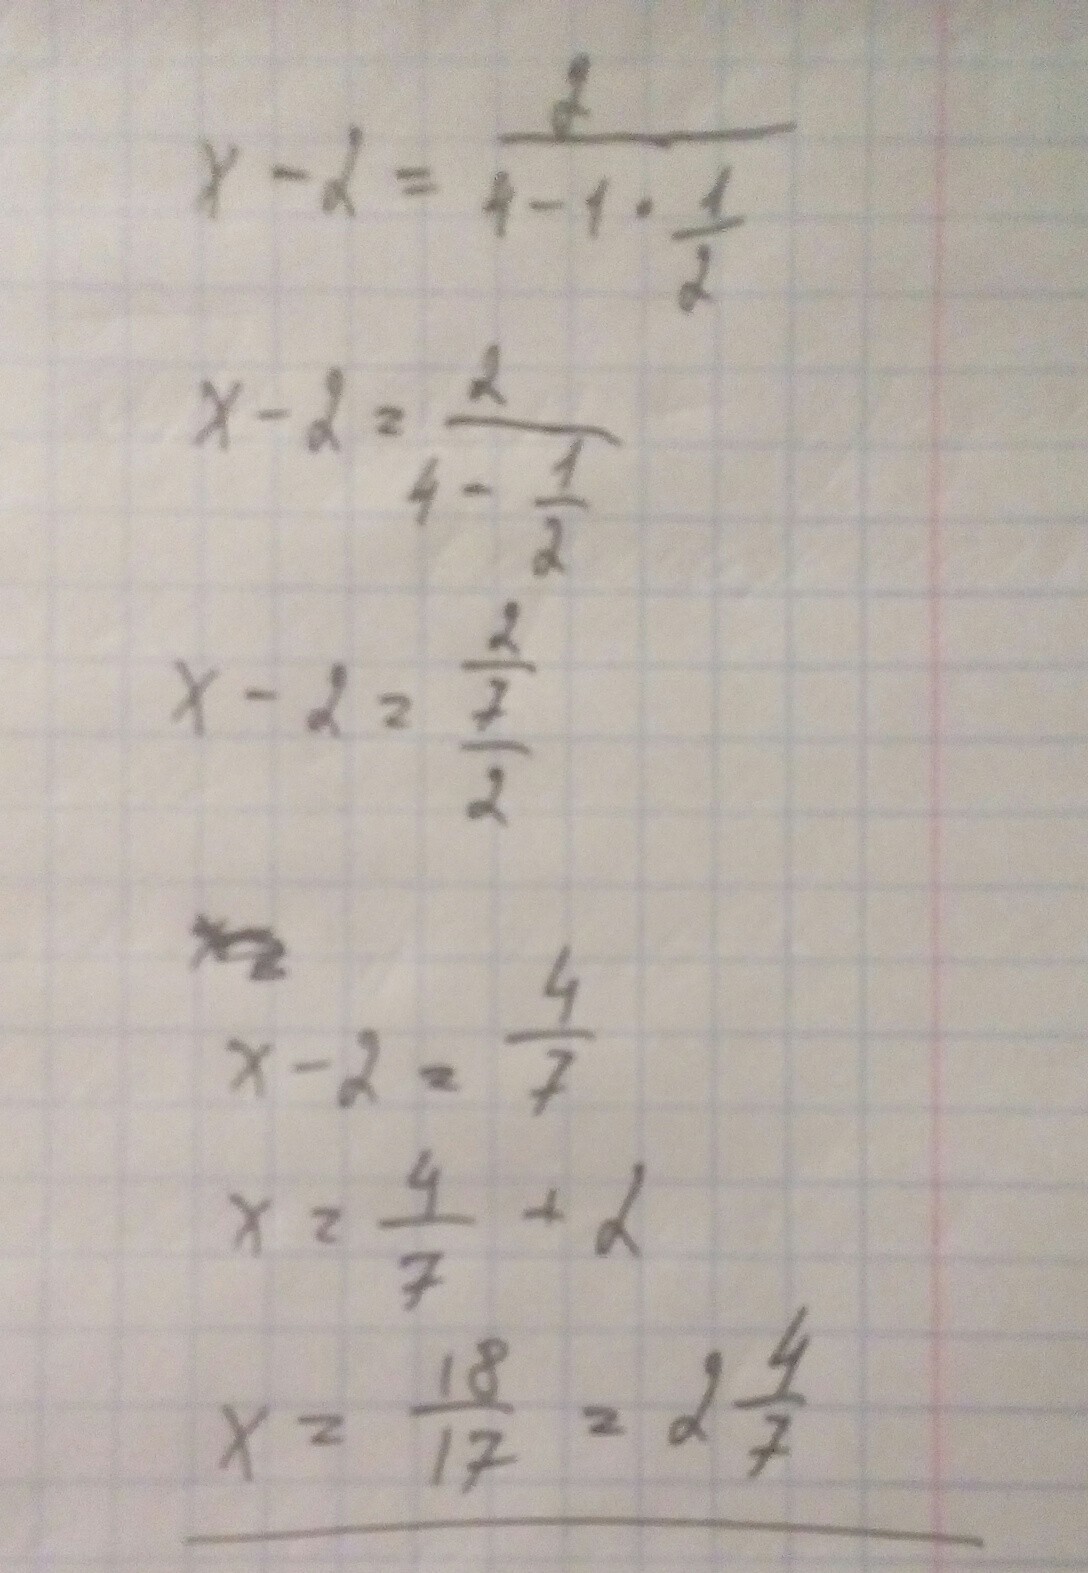 x - 2 = 2/(4 - 1 · 1/2)
x - 2 = 2/(4 - 1/2)
x - 2 = 2/(7/2)
x - 2 = 4/7
x = 4/7 + 2
x = 18/17 = 2 4/7